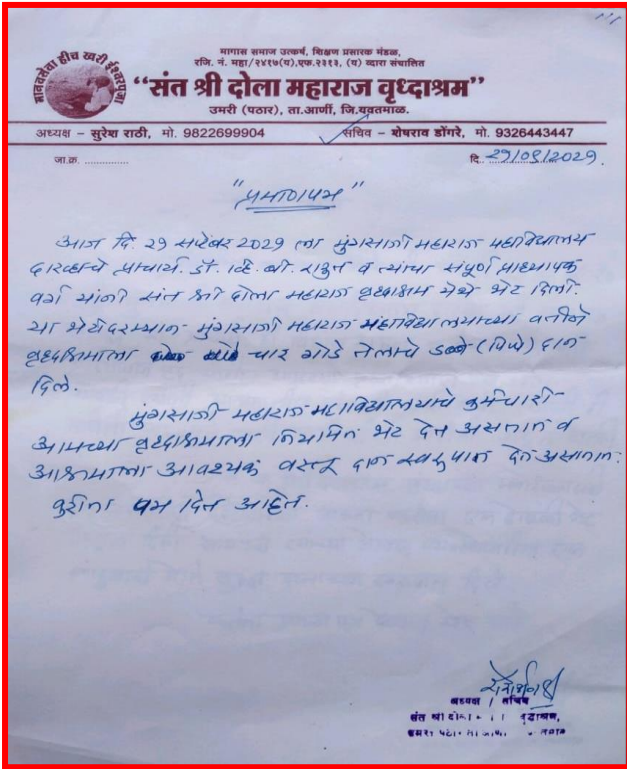 मानवसेवा हीच खरी ईश्वरपूजा
मागास समाज उत्कर्ष, शिक्षण प्रसारक मंडळ,
रजि. नं. महा/२४१७(य),एफ.२३१३, (य) व्दारा संचालित
"संत श्री दोला महाराज वृध्दाश्रम"
उमरी (पठार), ता.आर्णी, जि.यवतमाळ.
अध्यक्ष - सुरेश राठी, मो. 9822699904
सचिव - शेषराव डोंगरे, मो. 9326443447
जा.क्र. ..............
दि. २१/०९/२०२१.
"प्रमाणपत्र"
आज दि. २१ सप्टेंबर २०२१ ला मुंगसाजी महाराज महाविद्यालय
दारव्हाचे प्राचार्य. डॉ. व्हि. बी. राऊत व त्यांचा संपूर्ण प्राध्यापक
वर्ग यांनी संत श्री दोला महाराज वृध्दाश्रम येथे भेट दिली.
या भेटीदरम्यान मुंगसाजी महाराज महाविद्यालयाच्या वतीने
वृध्दाश्रमाला चार गोडे तेलाचे डब्बे (पिपे) दान
दिले.
मुंगसाजी महाराज महाविद्यालयाचे कर्मचारी
आमच्या वृध्दाश्रमाला नियमित भेट देत असतात व
आश्रमाला आवश्यक वस्तू दान स्वरूपात देत असतात.
करीता पत्र देत आहोत.
अध्यक्ष / सचिव
संत श्री दोला वृद्धाश्रम,